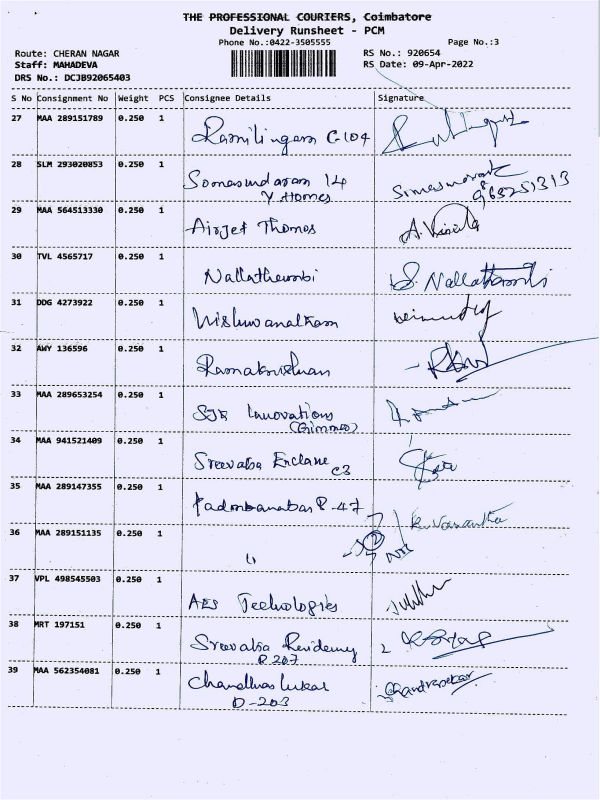 THE PROFESSIONAL COURIERS, Coimbatore
Delivery Runsheet - PCM
Phone No.:0422-3505555 Page No.:3
Route: CHERAN NAGAR RS No.: 920654
Staff: MAHADEVA RS Date: 09-Apr-2022
DRS No.: DCJB92065403
S No Consignment No Weight PCS Consignee Details Signature
27 MAA 289151789 0.250 1 Ramilingam C-104
28 SLM 293020853 0.250 1 Somasundaram 14
Y Homes
29 MAA 564513330 0.250 1 Airjet Thomos
30 TVL 4565717 0.250 1 Nallathambi S. Nallathambi
31 DDG 4273922 0.250 1 Vishwanathan
32 AWY 136596 0.250 1 Ramakrishnan
33 MAA 289653254 0.250 1 Innovations
34 MAA 941521409 0.250 1 Sreevatsa Enclave
C3
35 MAA 289147355 0.250 1 Padmanaban P-47
36 MAA 289151135 0.250 1 K. Vasantha
37 VPL 498545503 0.250 1 AES Technologies
38 MRT 197151 0.250 1 Sreevatsa Residency
R207
39 MAA 562354081 0.250 1 Chandhrasekar Chandrasekar
D-203